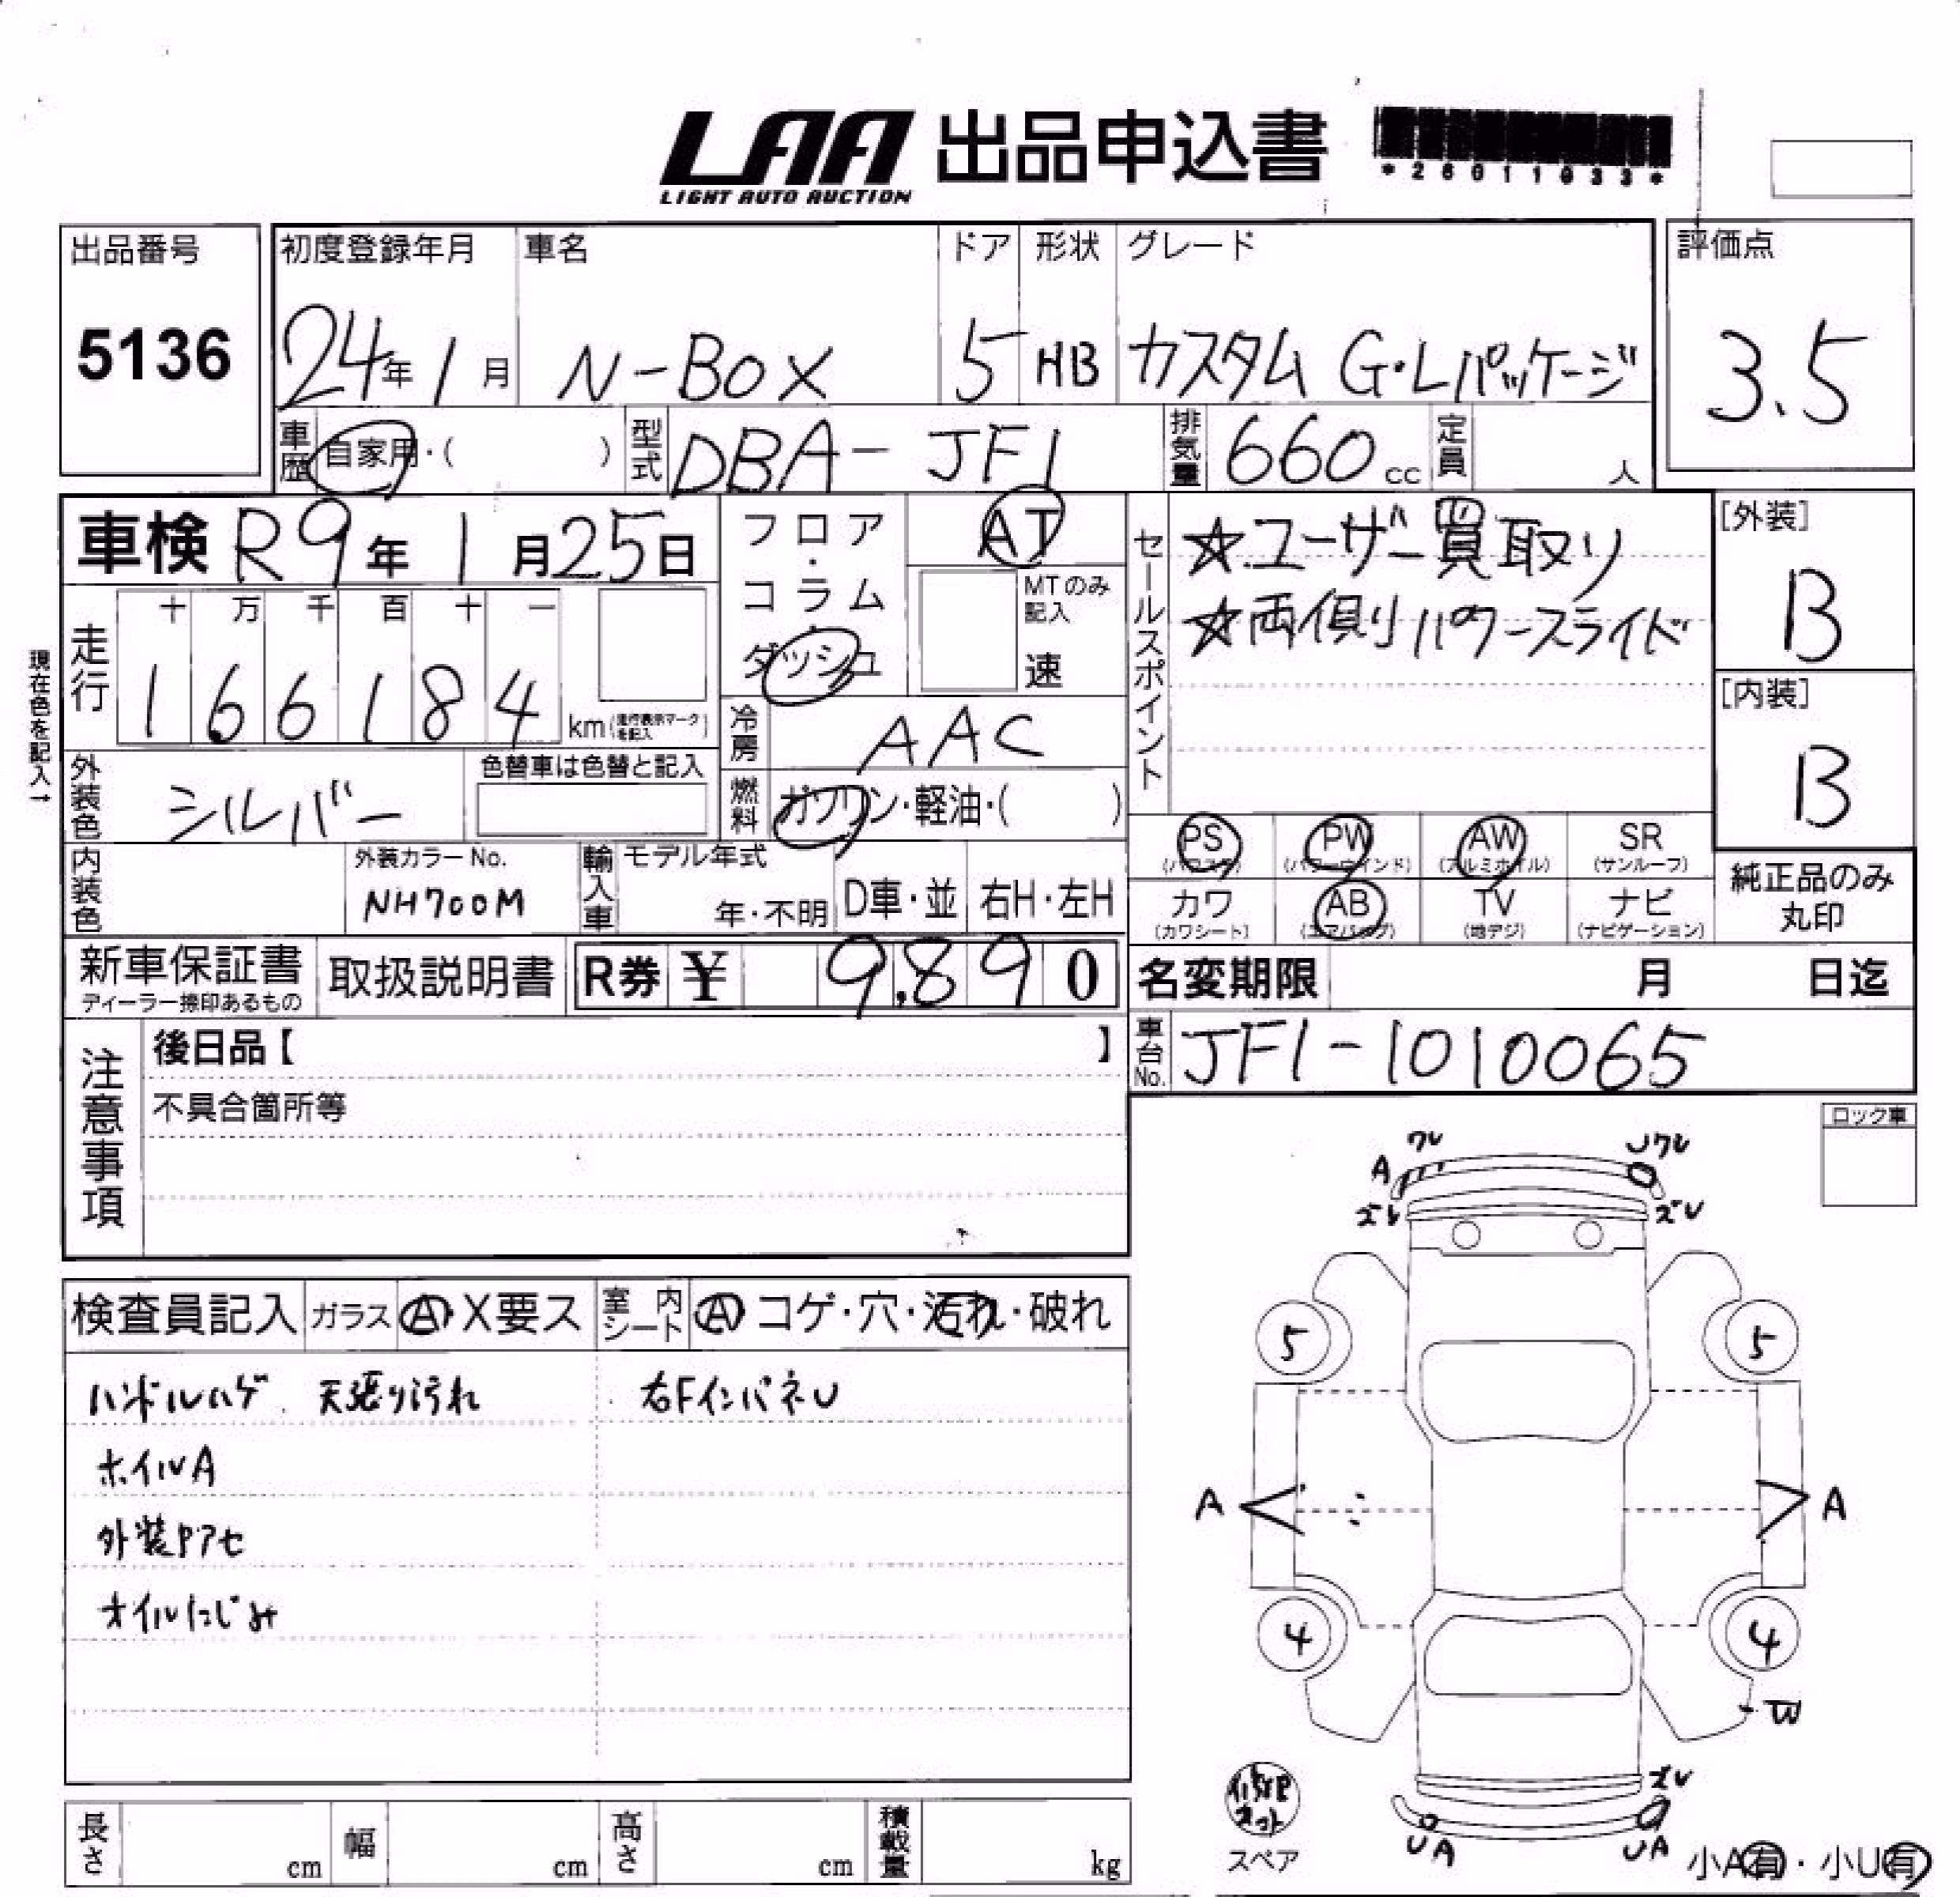 LAA 出品申込書
LIGHT AUTO AUCTION
*26011033*
出品番号
5136
初度登録年月
24年1月
車名
N-BOX
ドア
5
形状
HB
グレード
カスタム G・Lパッケージ
評価点
3.5
車歴 自家用・( )
型式 DBA-JF1
排気量 660cc
定員 人
車検 R9年1月25日
フロア・コラム・ダッシュ
AT
MTのみ記入
速
セールスポイント
☆ユーザー買取り
☆両側パワースライド
[外装]
B
[内装]
B
現在色を記入→
走行
十 万 千 百 十 一
1 6 6 1 8 4 km(走行表示マークを記入)
冷房 AAC
外装色 シルバー
色替車は色替と記入
燃料 ガソリン・軽油・( )
PS (パワステ)
PW (パワーウインド)
AW (アルミホイル)
SR (サンルーフ)
カワ (カワシート)
AB (エアバッグ)
TV (地デジ)
ナビ (ナビゲーション)
純正品のみ
丸印
内装色
外装カラーNo.
NH700M
輸入車
モデル年式
年・不明
D車・並
右H・左H
新車保証書
ディーラー捺印あるもの
取扱説明書
R券 ¥ 9,890
名変期限 月 日迄
車台No. JF1-1010065
注意事項
後日品【 】
不具合箇所等
ロック車
検査員記入
ガラス A・X要ス
室内シート A コゲ・穴・汚れ・破れ
ハンドルハゲ 天張り汚れ
右FインパネU
ホイルA
外装ヤアセ
オイルにじみ
ワレ
Uワレ
A
ズレ
ズレ
5
5
A
A
4
4
W
ズレ
UA
UA
スペア
小A有・小U有
長さ cm
幅 cm
高さ cm
積載量 kg